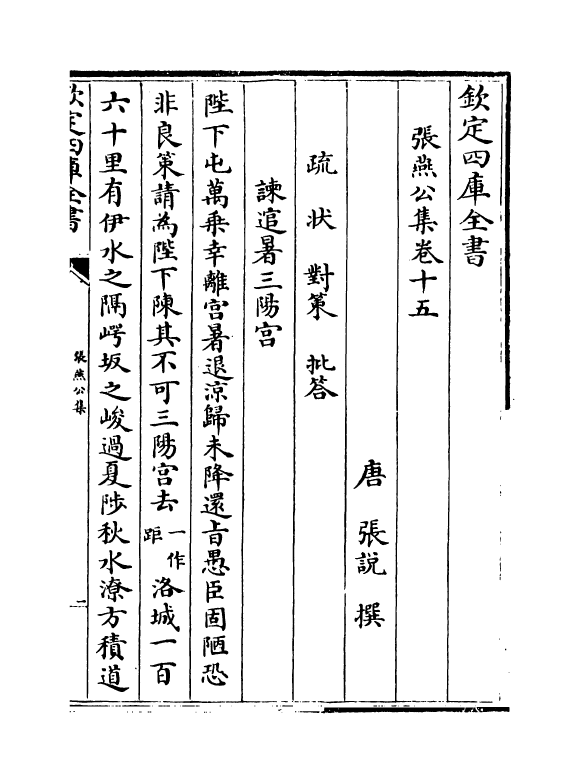 欽定四庫全書
張燕公集卷十五
唐 張說 撰
疏 狀 對策 批答
諫逭暑三陽宫
陛下屯萬乗幸離宫暑退涼歸未降還㫖愚臣固陋恐
非良策請為陛下陳其不可三陽宫去一作距洛城一百
六十里有伊水之隔崿坂之峻過夏陟秋水潦方積道
欽定四庫全書
張燕公集